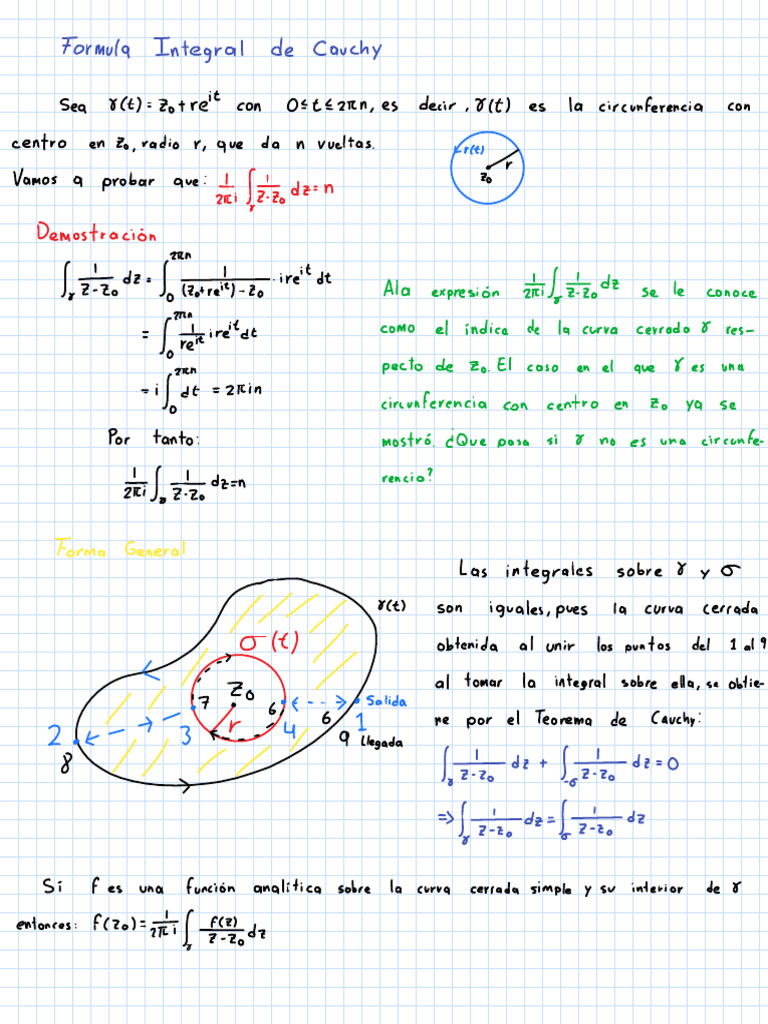 Formula Integral de Cauchy
Sea γ(t) = z₀+re^{it} con 0≤t≤2πn, es decir, γ(t) es la circunferencia con
centro en z₀, radio r, que da n vueltas.
γ(t)
r
z₀
Vamos a probar que: 1/(2πi) ∫_γ 1/(z-z₀) dz = n
Demostración
∫_γ 1/(z-z₀) dz = ∫_0^{2πn} 1/((z₀+re^{it})-z₀) · ire^{it} dt
= ∫_0^{2πn} 1/(re^{it}) ire^{it} dt
= i ∫_0^{2πn} dt = 2πin
Por tanto:
1/(2πi) ∫_γ 1/(z-z₀) dz = n
A la expresión 1/(2πi) ∫_γ 1/(z-z₀) dz se le conoce
como el índice de la curva cerrado γ res-
pecto de z₀. El caso en el que γ es una
circunferencia con centro en z₀ ya se
mostró. ¿Que pasa si γ no es una circunfe-
rencia?
Forma General
γ(t)
σ(t)
z₀
r
7
6
Salida
2
3
4
6
1
8
9 Llegada
Las integrales sobre γ y σ
son iguales, pues la curva cerrada
obtenida al unir los puntos del 1 al 9
al tomar la integral sobre ella, se obtie-
ne por el Teorema de Cauchy:
∫_γ 1/(z-z₀) dz + ∫_{-σ} 1/(z-z₀) dz = 0
=> ∫_γ 1/(z-z₀) dz = ∫_σ 1/(z-z₀) dz
Si f es una función analítica sobre la curva cerrada simple y su interior de γ
entonces: f(z₀) = 1/(2πi) ∫_γ f(z)/(z-z₀) dz